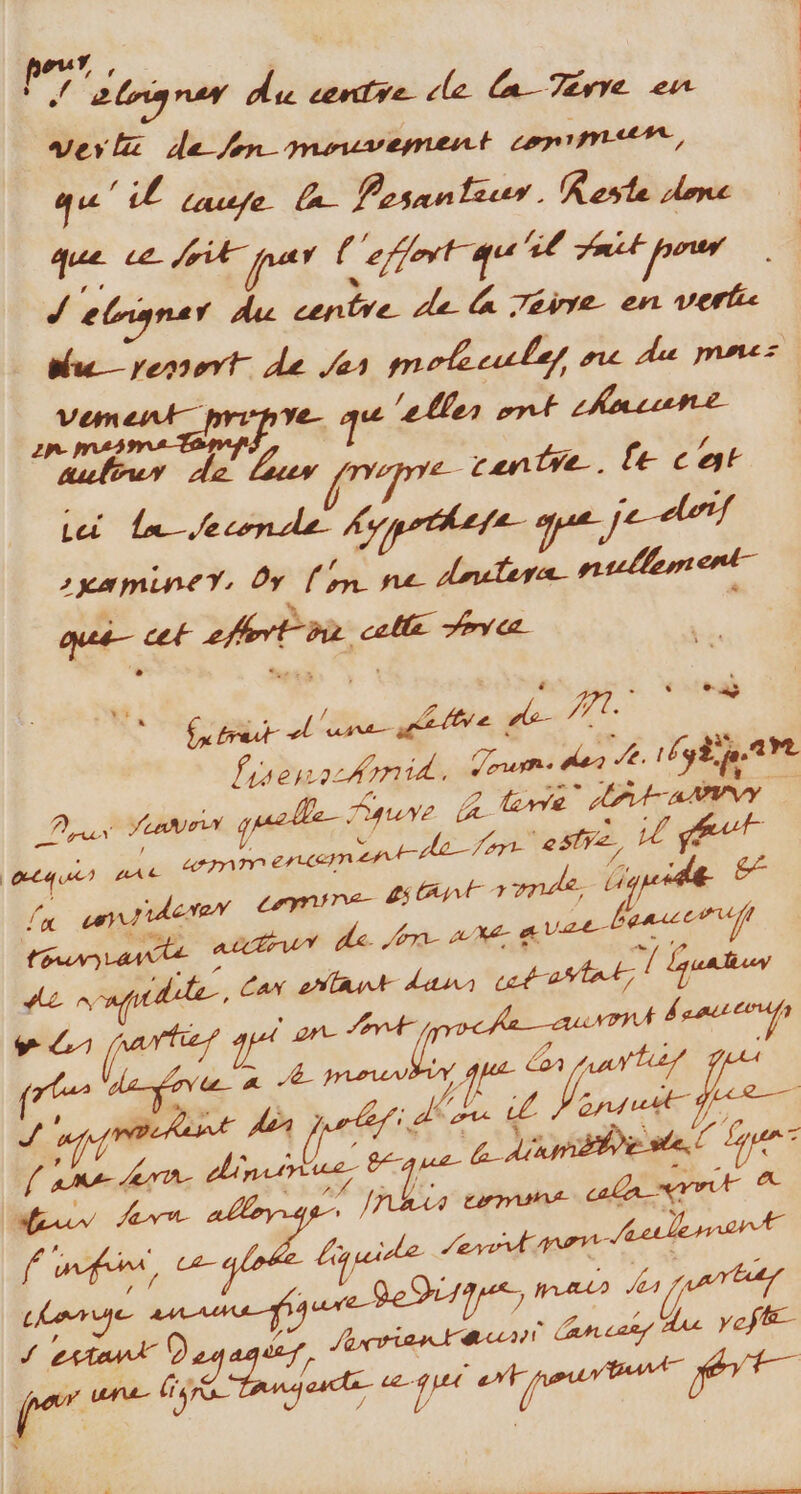 pour
s'eloigner du centre de la Terre en
vertu de son mouvement commun,
qu'il cause la Pesanteur. Reste donc
que ce soit par l'effort qu'il fait pour
s'eloigner du centre de la Terre en vertu
du ressort de ses molecules, ou du mou=
vement propre qu'elles ont chacune
en mesme temps
autour de leur propre centre. Et c'est
ici la seconde hypothese que je dois
examiner. Or l'on ne doutera nullement
que cet effort ou cette force
Extrait d'une Lettre de M.
Eisenschmid. Journ. des Sc. 169 p.
Pour scavoir quelle figure la terre doit avoir
acquis au commencement de son estre, il faut
la considerer comme estant ronde, liquide &
tournante autour de son axe avec beaucoup
de rapidité. Car estant dans cet estat, l'Equateur
& les parties qui en sont proche auront beaucoup
plus de force à se mouvoir, que les parties qui
s'approchent des poles; d'où il s'ensuit que
l'axe sera diminué, & que le diametre de l'Equa=
teur sera allongé. Mais comme cela iroit a
l'infini, ce globe liquide seroit non seulement
changé en une figure de Disque, mais ses parties
s'estant Degagées, seroient aussi lancées du reste
par une ligne tangente, ce qui est pourtant fort